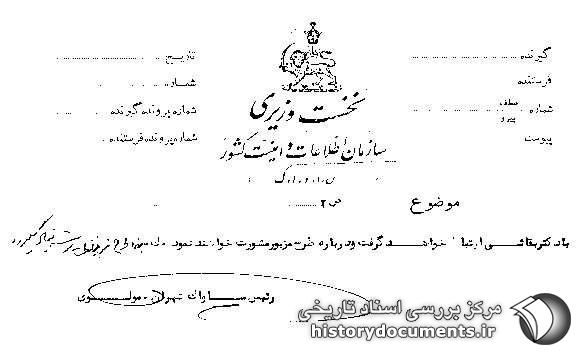 گیرنده
تاریخ
فرستنده
شماره
نخست وزیری
شماره عطف پیرو
شماره پرونده گیرنده
پیوست
شماره پرونده فرستنده
سازمان اطلاعات و امنیت کشور
س.ا.و.ا.ک
موضوع
ص ۲
با دکتر بقائی ارتباط خواهند گرفت و درباره طرح مزبور مشورت خواهند نمود
رئیس ساواک تهران - مولوی
مرکز بررسی اسناد تاریخی
historydocuments.ir